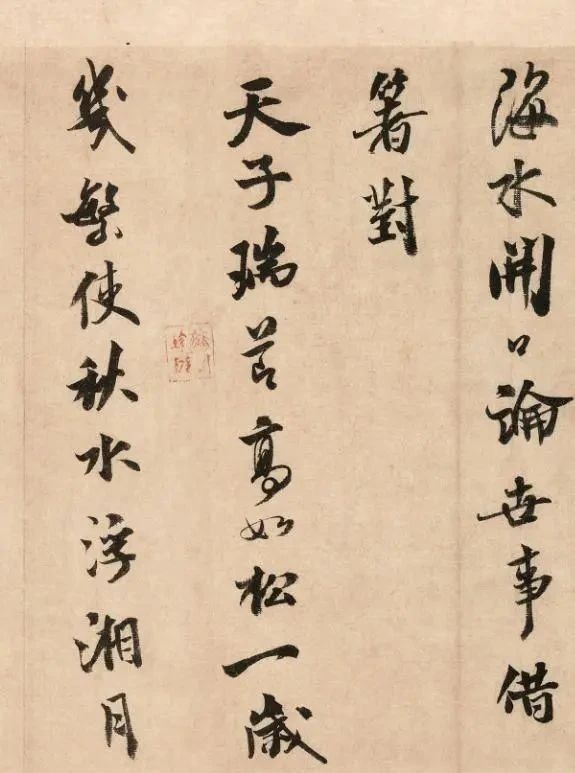 海水開口論世事借
箸對
天子瑞節高如松一歲
幾繁使秋水浮湘月